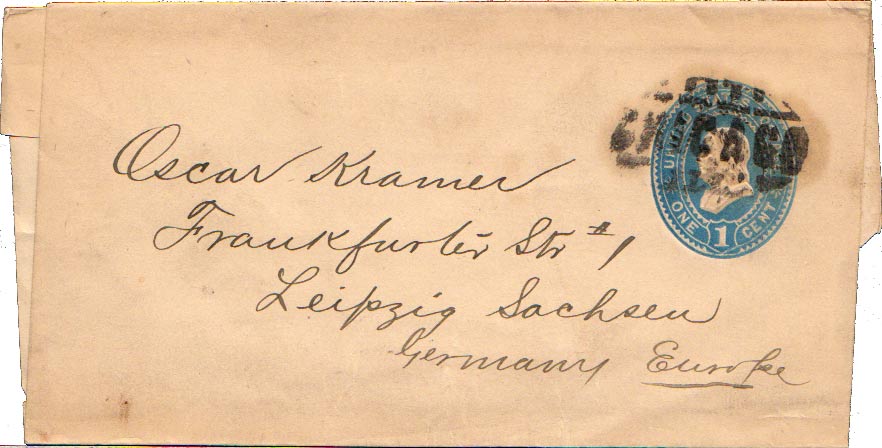 CHICAGO
UNITED STATES
ONE 1 CENT
Oscar Kramer
Frankfurter Str # 1
Leipzig Sachsen
Germany Europe